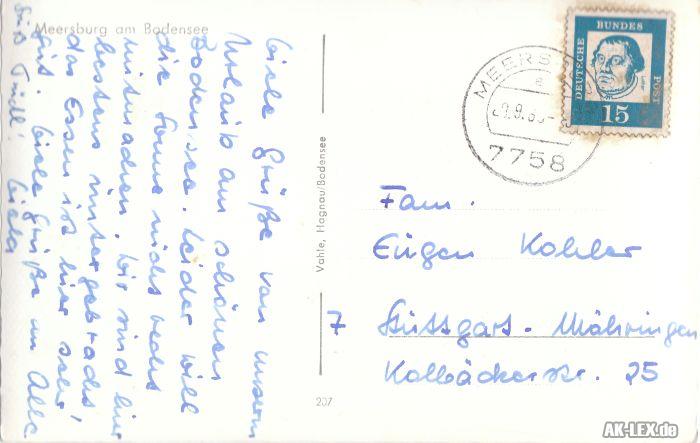 Meersburg am Bodensee
Viele Grüße von unserem
Urlaub am schönen
Bodensee. Leider will
die Sonne nicht recht
mitmachen. Wir sind hier
bestens untergebracht,
das Essen ist hier sehr
gut. Viele Grüße an Alle
Vahle, Hagnau/Bodensee
207
MEERS
9.63
7758
DEUTSCHE
BUNDES
POST
15
Fam.
Eugen Kohler
7 Stuttgart - Möhringen
Kalbäckerstr. 25
AK-LEX.de